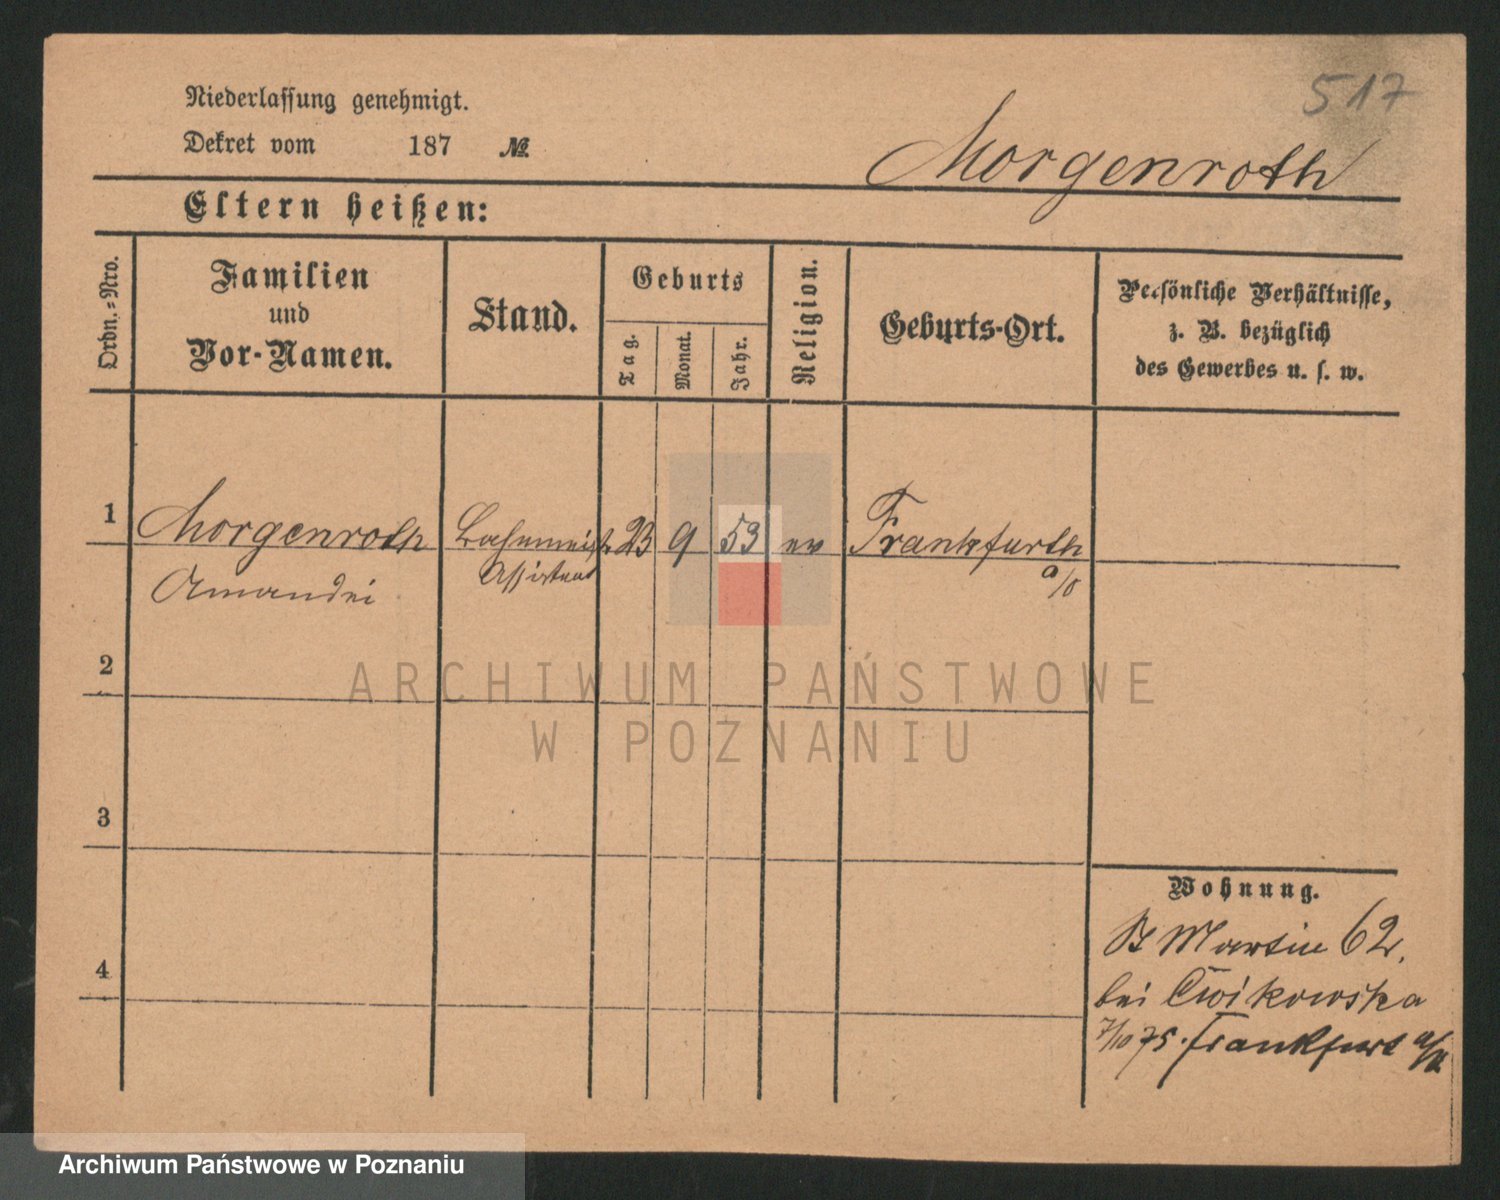 517
Niederlassung genehmigt.
Dekret vom 187 №
Morgenroth
Eltern heißen:
Ordn.=Nro.
Familien
und
Vor-Namen.
Stand.
Geburts
Tag.
Monat.
Jahr.
Religion.
Geburts-Ort.
Persönliche Verhältnisse,
z. B. bezüglich
des Gewerbes u. s. w.
1 Morgenroth 23 9 53 ev Frankfurth
Assistent a/o
2
3
4
Wohnung.
St Martin 62.
bei Cwikowska
7/10 75. Frankfurt
ARCHIWUM PAŃSTWOWE
W POZNANIU
Archiwum Państwowe w Poznaniu